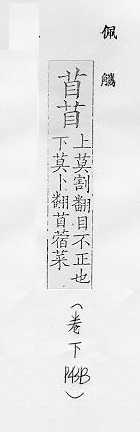 佩觿
苜苜
上莫割翻目不正也
下莫卜翻苜蓿菜
(卷下 P43B)